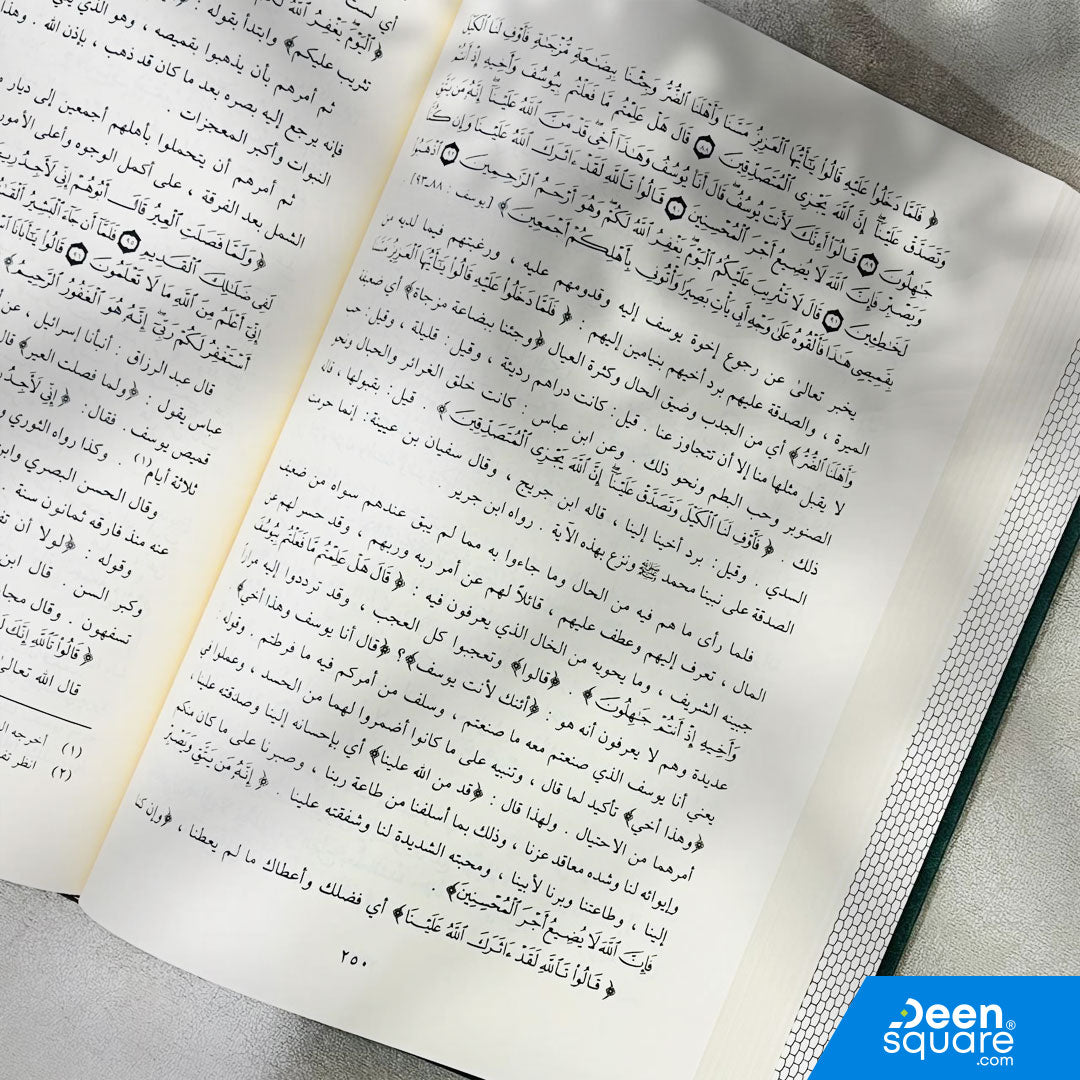 ﴿ فَلَمَّا دَخَلُوا۟ عَلَيْهِ قَالُوا۟ يَٰٓأَيُّهَا ٱلْعَزِيزُ مَسَّنَا وَأَهْلَنَا ٱلضُّرُّ وَجِئْنَا بِبِضَٰعَةٍ مُّزْجَىٰةٍ فَأَوْفِ لَنَا ٱلْكَيْلَ
وَتَصَدَّقْ عَلَيْنَآ ۖ إِنَّ ٱللَّهَ يَجْزِى ٱلْمُتَصَدِّقِينَ ٨٨ قَالَ هَلْ عَلِمْتُم مَّا فَعَلْتُم بِيُوسُفَ وَأَخِيهِ إِذْ أَنتُمْ
جَٰهِلُونَ ٨٩ قَالُوٓا۟ أَءِنَّكَ لَأَنتَ يُوسُفُ ۖ قَالَ أَنَا۠ يُوسُفُ وَهَٰذَآ أَخِى ۖ قَدْ مَنَّ ٱللَّهُ عَلَيْنَآ ۖ إِنَّهُۥ مَن يَتَّقِ
وَيَصْبِرْ فَإِنَّ ٱللَّهَ لَا يُضِيعُ أَجْرَ ٱلْمُحْسِنِينَ ٩٠ قَالُوا۟ تَٱللَّهِ لَقَدْ ءَاثَرَكَ ٱللَّهُ عَلَيْنَا وَإِن كُنَّا
لَخَٰطِـِٔينَ ٩١ قَالَ لَا تَثْرِيبَ عَلَيْكُمُ ٱلْيَوْمَ ۖ يَغْفِرُ ٱللَّهُ لَكُمْ ۖ وَهُوَ أَرْحَمُ ٱلرَّٰحِمِينَ ٩٢ ٱذْهَبُوا۟
بِقَمِيصِى هَٰذَا فَأَلْقُوهُ عَلَىٰ وَجْهِ أَبِى يَأْتِ بَصِيرًا وَأْتُونِى بِأَهْلِكُمْ أَجْمَعِينَ ﴾ [يوسف : ٨٨ـ٩٣] .
يخبر تعالى عن رجوع إخوة يوسف إليه وقدومهم عليه ، ورغبتهم فيما لديه من
الميرة ، والصدقة عليهم برد أخيهم بنيامين إليهم : ﴿ فَلَمَّا دَخَلُوا۟ عَلَيْهِ قَالُوا۟ يَٰٓأَيُّهَا ٱلْعَزِيزُ مَسَّنَا
وَأَهْلَنَا ٱلضُّرُّ ﴾ أي من الجدب وضيق الحال وكثرة العيال ﴿وجئنا ببضاعة مزجاة﴾ أي ضعيفة
لا يقبل مثلها منا إلا أن تتجاوز عنا . قيل: كانت دراهم رديئة ، وقيل: قليلة ، وقيل: حب
الصنوبر وحب البطم ونحو ذلك . وعن ابن عباس : كانت خلق الغرائر والحبال ونحو
ذلك . ﴿ فَأَوْفِ لَنَا ٱلْكَيْلَ وَتَصَدَّقْ عَلَيْنَآ ۖ إِنَّ ٱللَّهَ يَجْزِى ٱلْمُتَصَدِّقِينَ ﴾ . قيل: بقبولها ، قاله
السدي . وقيل: برد أخينا إلينا ، قاله ابن جريج ، وقال سفيان بن عيينة : إنما حرمت
الصدقة على نبينا محمد ﷺ ونزع بهذه الآية . رواه ابن جرير .
فلما رأى ما هم فيه من الحال وما جاءوا به مما لم يبق عندهم سواه من ضعيف
المال ، تعرف إليهم وعطف عليهم ، قائلاً لهم عن أمر ربه وربهم ، وقد حسر لهم عن
جبينه الشريف ، وما يحويه من الخال الذي يعرفون فيه : ﴿ قَالَ هَلْ عَلِمْتُم مَّا فَعَلْتُم بِيُوسُفَ
وَأَخِيهِ إِذْ أَنتُمْ جَٰهِلُونَ ﴾ . ﴿قالوا﴾ وتعجبوا كل العجب ، وقد ترددوا إليه مراراً
عديدة وهم لا يعرفون أنه هو : ﴿أئنك لأنت يوسف﴾؟ ﴿قال أنا يوسف وهذا أخي﴾
يعني أنا يوسف الذي صنعتم معه ما صنعتم ، وسلف من أمركم فيه ما فرطتم . وقوله
﴿وهذا أخي﴾ تأكيد لما قال ، وتنبيه على ما كانوا أضمروا لهما من الحسد ، وعملوا في
أمرهما من الاحتيال . ولهذا قال : ﴿قد من الله علينا﴾ أي بإحسانه إلينا وصدقته علينا ،
وإيوائه لنا وشده معاقد عزنا ، وذلك بما أسلفنا من طاعة ربنا ، وصبرنا على ما كان منكم
إلينا ، وطاعتنا وبرنا لأبينا ، ومحبته الشديدة لنا وشفقته علينا . ﴿ إِنَّهُۥ مَن يَتَّقِ وَيَصْبِرْ
فَإِنَّ ٱللَّهَ لَا يُضِيعُ أَجْرَ ٱلْمُحْسِنِينَ ﴾ .
﴿ قَالُوا۟ تَٱللَّهِ لَقَدْ ءَاثَرَكَ ٱللَّهُ عَلَيْنَا ﴾ أي فضلك وأعطاك ما لم يعطنا ، ﴿وإن كنا
٢٥٠
أي لست
﴿ ٱلْيَوْمَ يَغْفِرُ ٱللَّهُ
تثريب عليكم﴾ وابتدأ بقوله :
ثم أمرهم بأن يذهبوا بقميصه ، وهو الذي
فإنه يرجع إليه بصره بعد ما كان قد ذهب ، بإذن الله . وهذا
النبوات وأكبر المعجزات .
ثم أمرهم أن يتحملوا بأهلهم أجمعين إلى ديار
الشمل بعد الفرقة ، على أكمل الوجوه وأعلى الأمور
﴿ وَلَمَّا فَصَلَتِ ٱلْعِيرُ قَالَ أَبُوهُمْ إِنِّى لَأَجِدُ
لَفِى ضَلَٰلِكَ ٱلْقَدِيمِ ٩٥ فَلَمَّآ أَن جَآءَ ٱلْبَشِيرُ
إِنِّىٓ أَعْلَمُ مِنَ ٱللَّهِ مَا لَا تَعْلَمُونَ ٩٦ قَالُوا۟ يَٰٓأَبَانَا
أَسْتَغْفِرُ لَكُمْ رَبِّىٓ ۖ إِنَّهُۥ هُوَ ٱلْغَفُورُ ٱلرَّحِيمُ ﴾
قال عبد الرزاق : أنبأنا إسرائيل ، عن
عباس يقول : ﴿ولما فصلت العير﴾ قال
قميص يوسف . فقال: ﴿إِنِّى لَأَجِدُ
ثلاثة أيام(١) . وكذا رواه الثوري
وقال الحسن البصري وابن
عنه منذ فارقه ثمانون سنة .
وقوله : ﴿لولا أن
وكبر السن . قال ابن
تسفهون . وقال
﴿ قَالُوا۟ تَٱللَّهِ إِنَّكَ
قال الله تعالى
(١) أخرجه
(٢) انظر
Deen
square®
.com